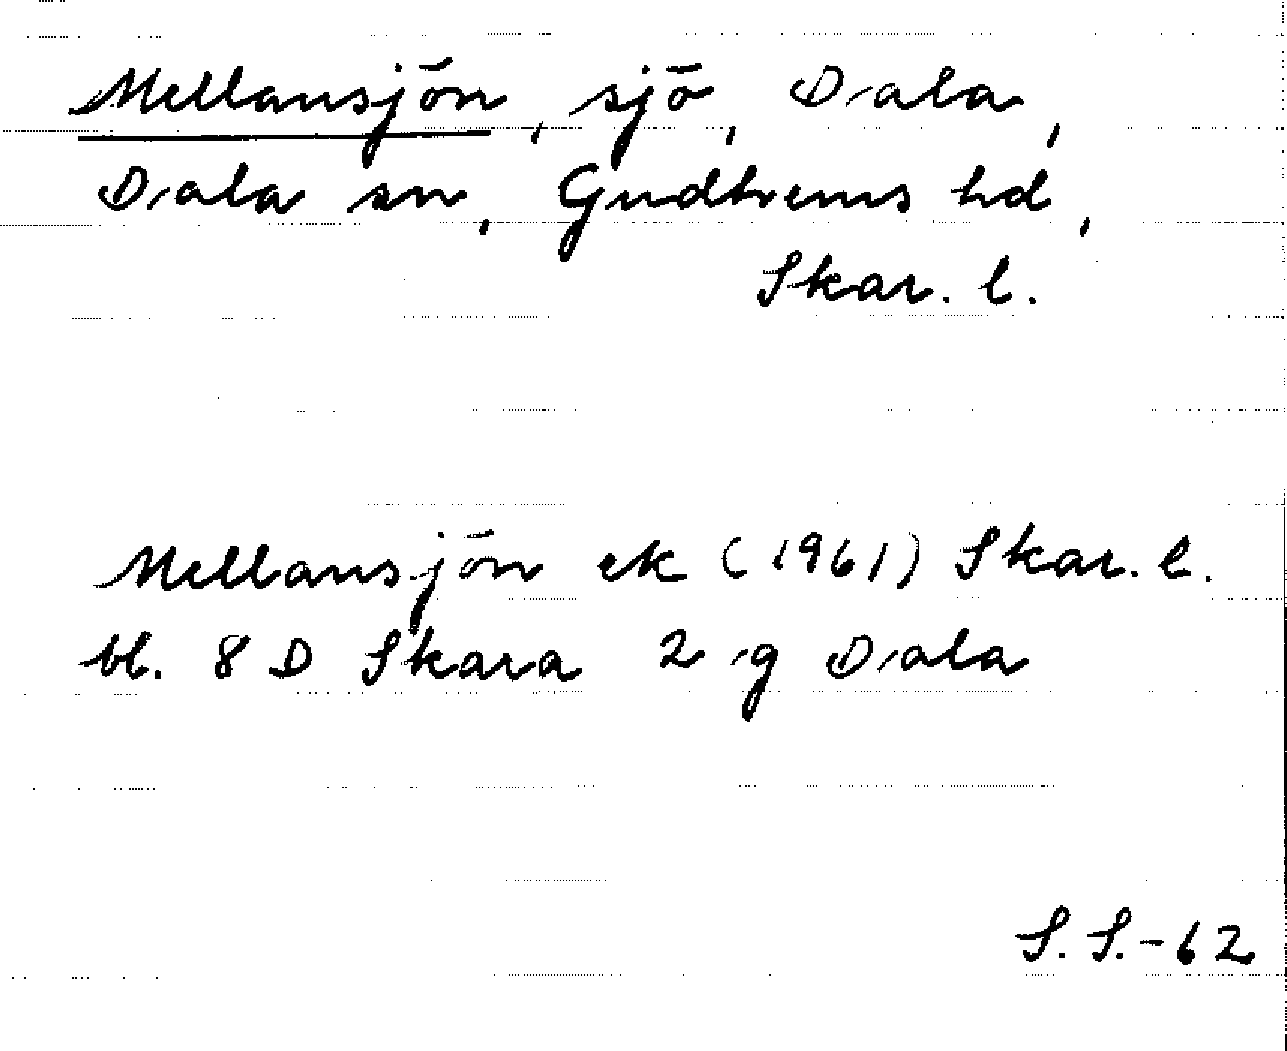 Mellansjön, sjö, Dala,
Dala sn, Gudhems hd,
Skar. l.
Mellansjön ek (1961) Skar. l.
bl. 8 D Skara 2 g Dala
S. S. - 62